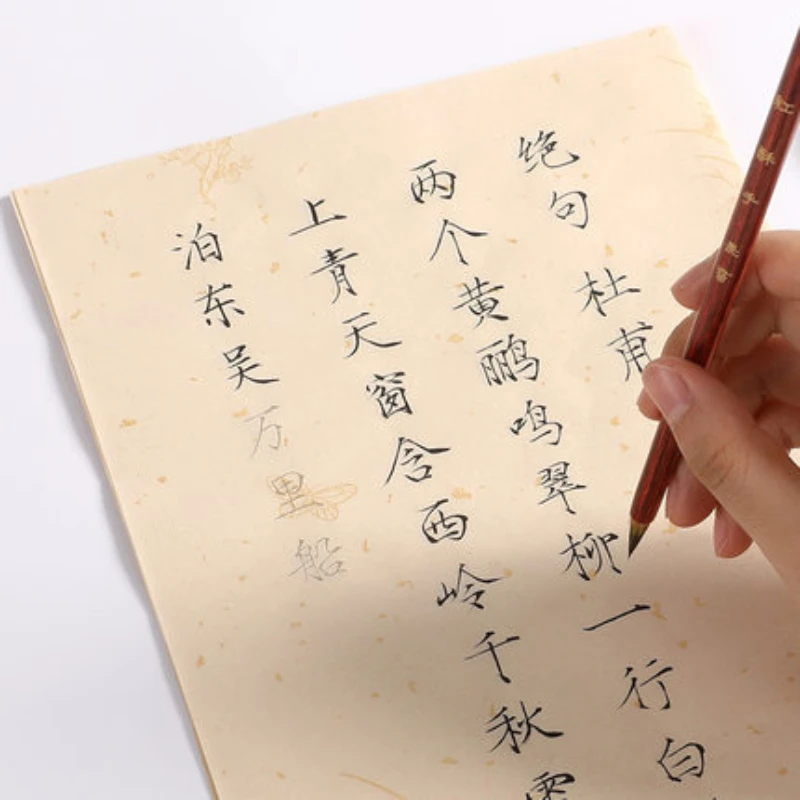 绝句 杜甫
两个黄鹂鸣翠柳一行白
上青天窗含西岭千秋雪
泊东吴万里船
红酥手